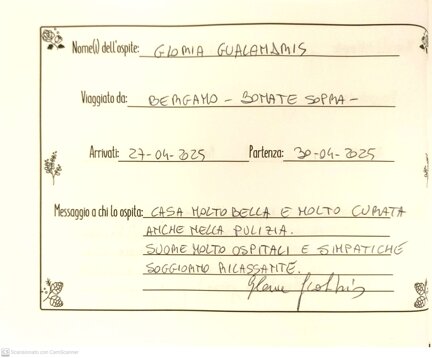 Nome(i) dell'ospite: GLORIA GUALANDRIS
Viaggiato da: BERGAMO - BONATE SOPRA -
Arrivati: 27-04-2025 Partenza: 30-04-2025
Messaggio a chi lo ospita: CASA MOLTO BELLA E MOLTO CURATA
ANCHE NELLA PULIZIA.
SUORE MOLTO OSPITALI E SIMPATICHE
SOGGIORNO RILASSANTE.
Scansionato con CamScanner